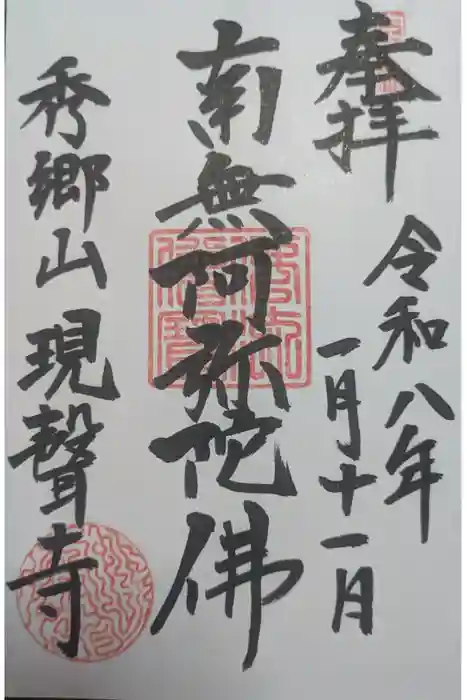 奉拝
令和八年
一月十一月
南無阿弥陀佛
佛法僧寶
秀郷山 現聲寺